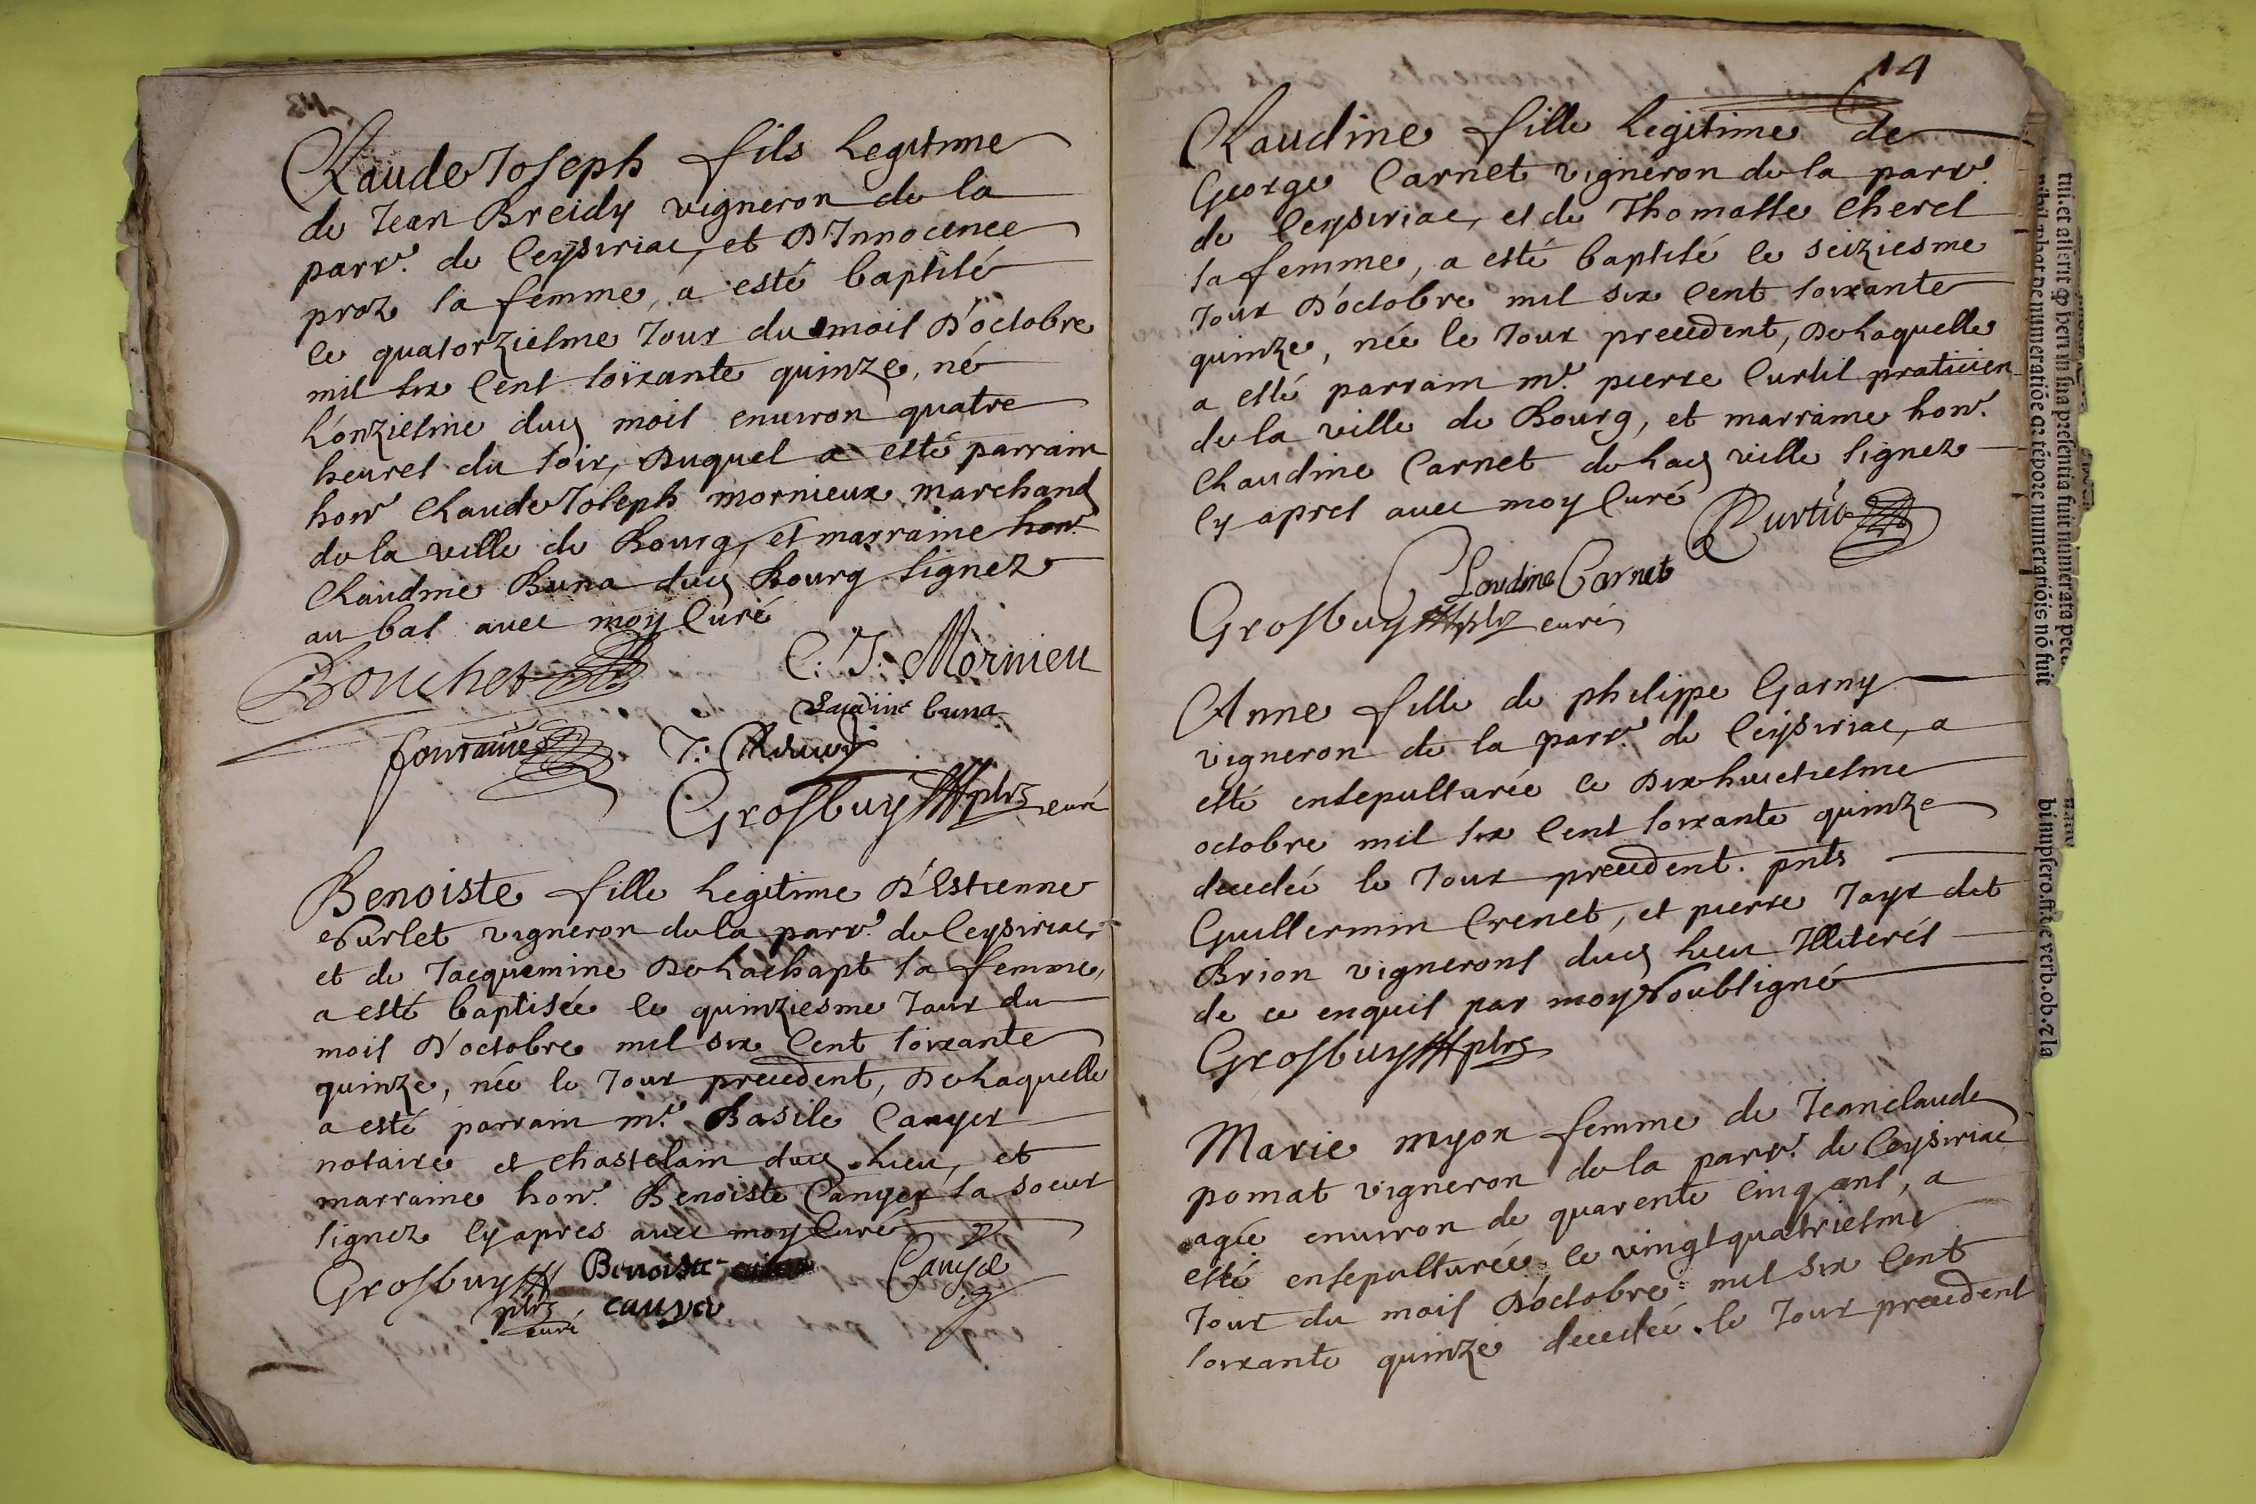 Claude Joseph fils Legitime
de Jean Breidy vigneron de la
parr.e de Ceysiriac, et D'Innocence
proz sa femme, a esté baptisé
le quatorziesme Jour du mois D'octobre
mil six Cent soixante quinze, né
L'onziesme dud mois environ quatre
heures du soir, Duquel a esté parrain
hon.e Claude Joseph mornieux marchand
de la ville de Bourg, et marraine hon.e
Claudine Buna dud Bourg signez
au bas avec moy Curé
Bouchet C. J. Mornieu
Claudine buna
fontaine
Grosbuy ptre curé
Benoiste fille Legitime D'Estienne
Surlet vigneron de la parr.e de Ceysiriac,
et de Jacquemine De Lachapt sa femme,
a esté baptisée le quinziesme Jour du
mois D'octobre mil six Cent soixante
quinze, née le Jour precedent, De Laquelle
a esté parrain m.e Basile Cauyer
notaire et Chastelain dud Lieu, et
marraine hon.e Benoiste Cauyer sa soeur
signez Cy apres avec moy Curé
Grosbuy Benoiste Cauyer
ptre curé cauyer
14
Claudine fille Legitime de
George Carnet vigneron de la parr.e
de Ceysiriac, et de Thomasse Cherel
sa femme, a esté baptisé le seiziesme
Jour D'octobre mil six Cent soixante
quinze, née le Jour precedent, De Laquelle
a esté parrain m.e pierre Curtil praticien
de la ville de Bourg, et marraine hon.e
Claudine Carnet de Lad ville signez
Cy apres avec moy Curé Curtil
Claudine Carnet
Grosbuy ptre curé
Anne fille de philippe Garny
vigneron de la parr.e de Ceysiriac, a
esté ensepulturée le Dix huictiesme
octobre mil six Cent soixante quinze
decedée le Jour precedent. pnts
Guillermin Crenet, et pierre Jayr dit
Brion vignerons dud Lieu Illiterés
de ce enquis par moy soubsigné
Grosbuy ptre
Marie myon femme de Jeanclaude
pomat vigneron de la parr.e de Ceysiriac
agée environ de quarente Cinq ans, a
esté ensepulturée le vingt quatriesme
Jour du mois D'octobre mil six Cent
soixante quinze decedée le Jour precedent